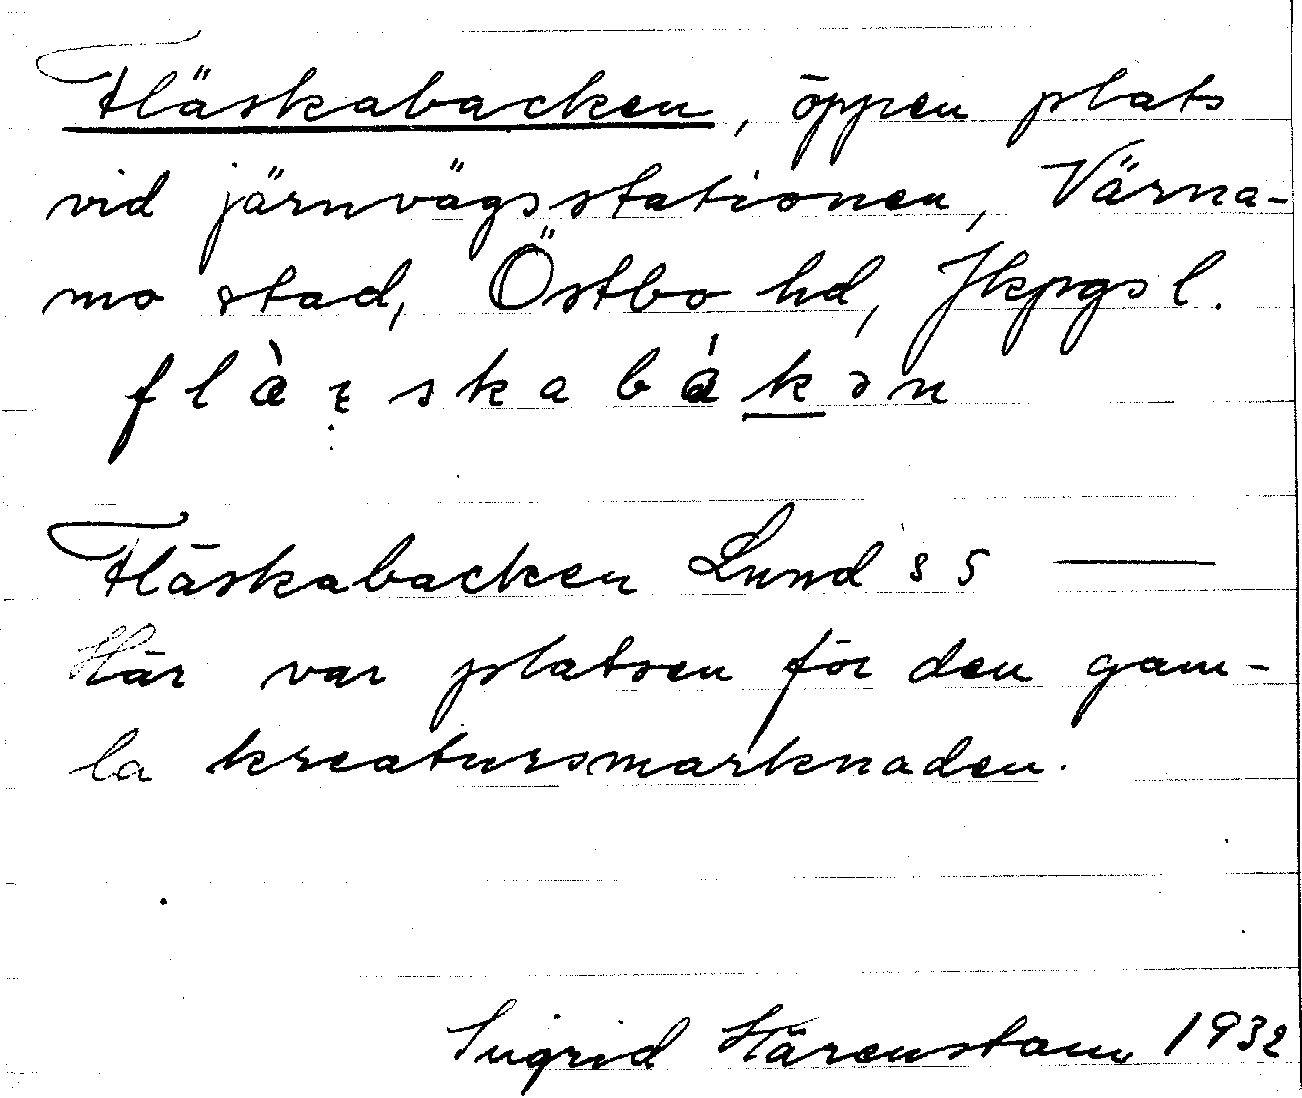 Fläskabacken, öppen plats
vid järnvägsstationen, Värna-
mo stad, Östbo hd, Jkpgs l.
Fläskabacken Lund s 5 —
Här var platsen för den gam-
la kreatursmarknaden.
Sigrid Härenstam 1932